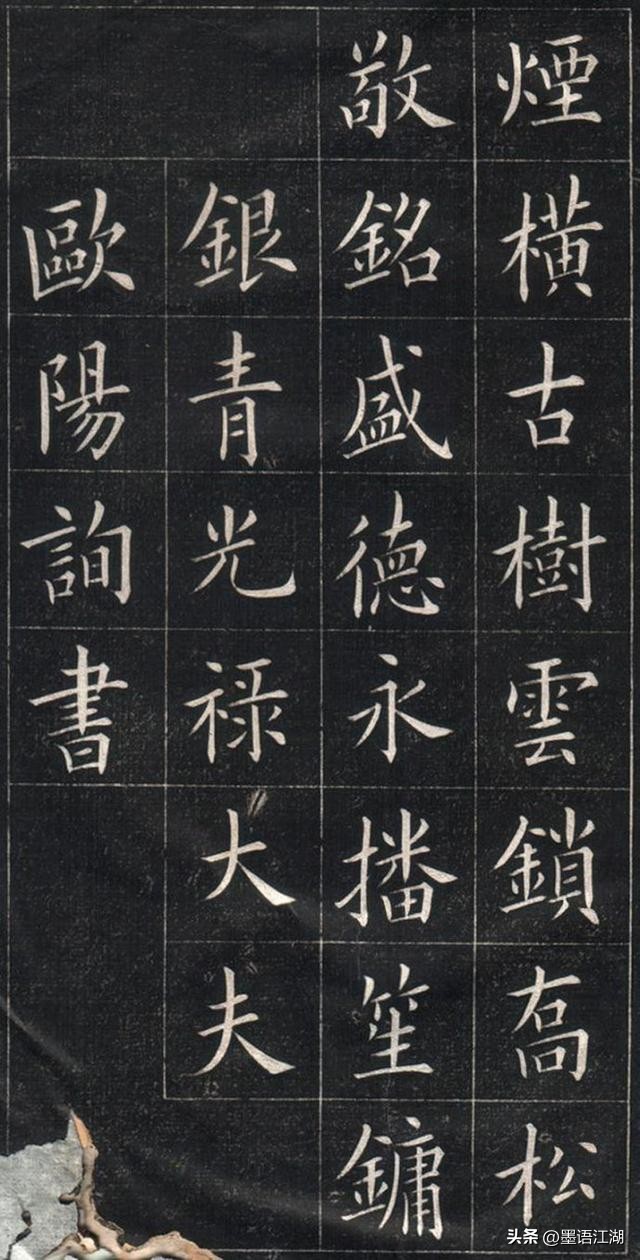 煙橫古樹雲鎖喬松
敬銘盛德永播笙鏞
銀青光祿大夫
歐陽詢書
头条 @墨语江湖